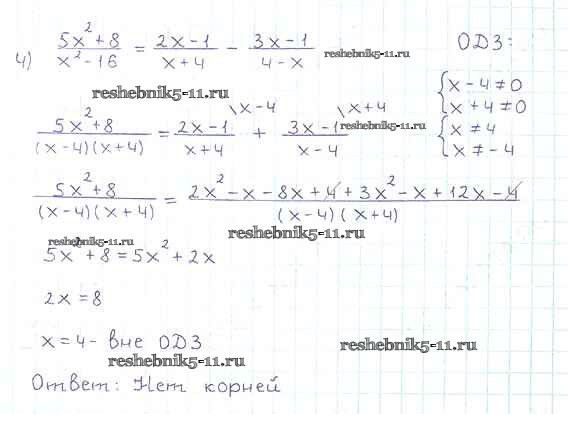 4) (5x²+8)/(x²-16) = (2x-1)/(x+4) - (3x-1)/(4-x) reshebnik5-11.ru ОДЗ:
reshebnik5-11.ru
{x-4≠0
{x+4≠0
(5x²+8)/((x-4)(x+4)) = (2x-1)/(x+4) \x-4 + (3x-1)/(x-4) \x+4 reshebnik5-11.ru
{x≠4
{x≠-4
(5x²+8)/((x-4)(x+4)) = (2x²-x-8x+4+3x²-x+12x-4)/((x-4)(x+4))
reshebnik5-11.ru
reshebnik5-11.ru
5x²+8=5x²+2x
2x=8
x=4- вне ОДЗ
reshebnik5-11.ru
reshebnik5-11.ru
Ответ: Нет корней